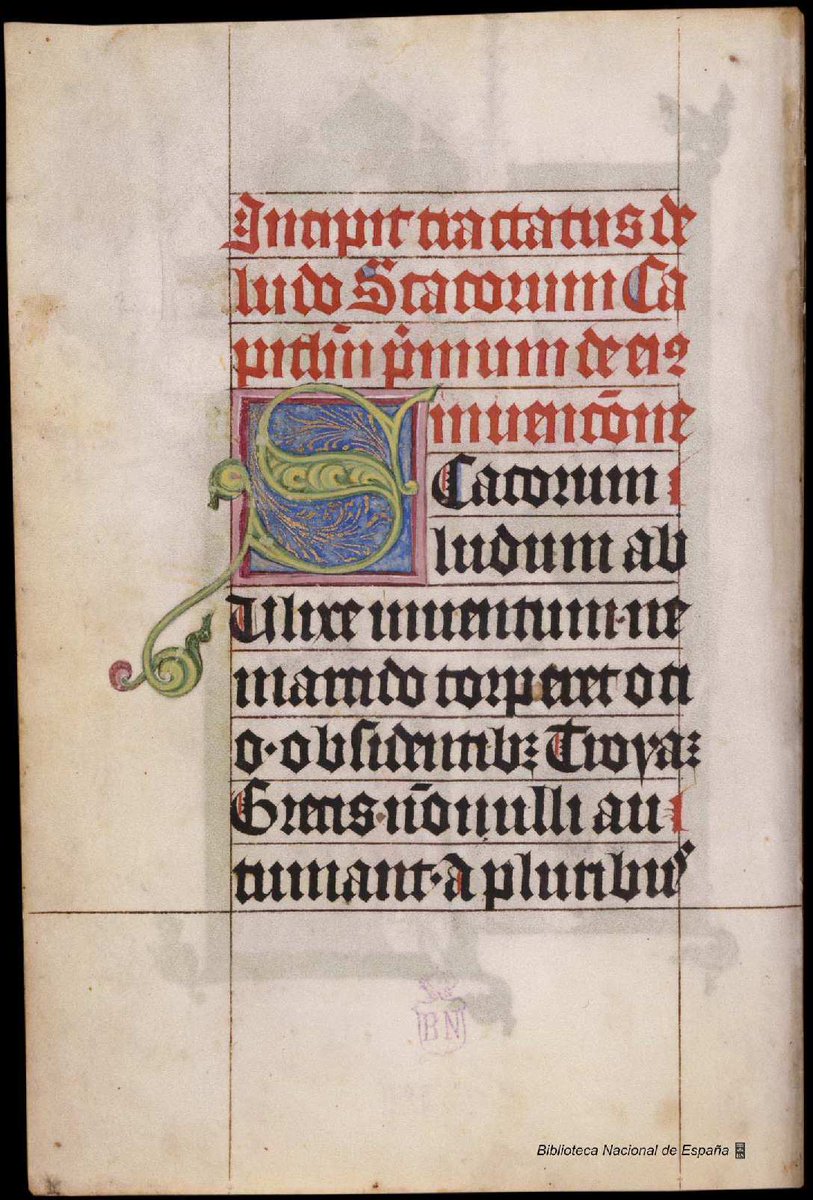 Incipit tractatus de
ludo Scacorum Ca
pitl̄m p̄mum de eiꝰ
inuencōne
SCacorum
ludum ab
Ulixe inuentum·ne
marcido torperet oci
o·obsidentibꝫ Troyaꝫ
Grecis·nōnulli au
tumant·A pluribuꝰ
BN
Biblioteca Nacional de España